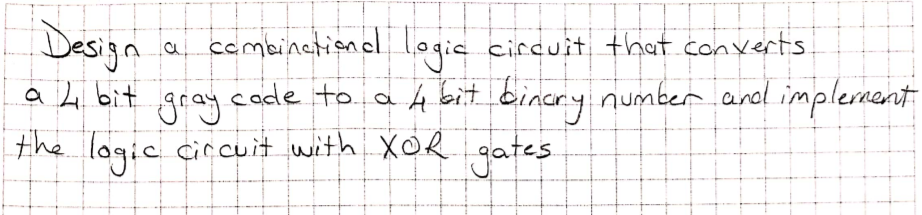 Design a combinational logic circuit that converts
a 4 bit gray code to a 4 bit binary number and implement
the logic circuit with XOR gates